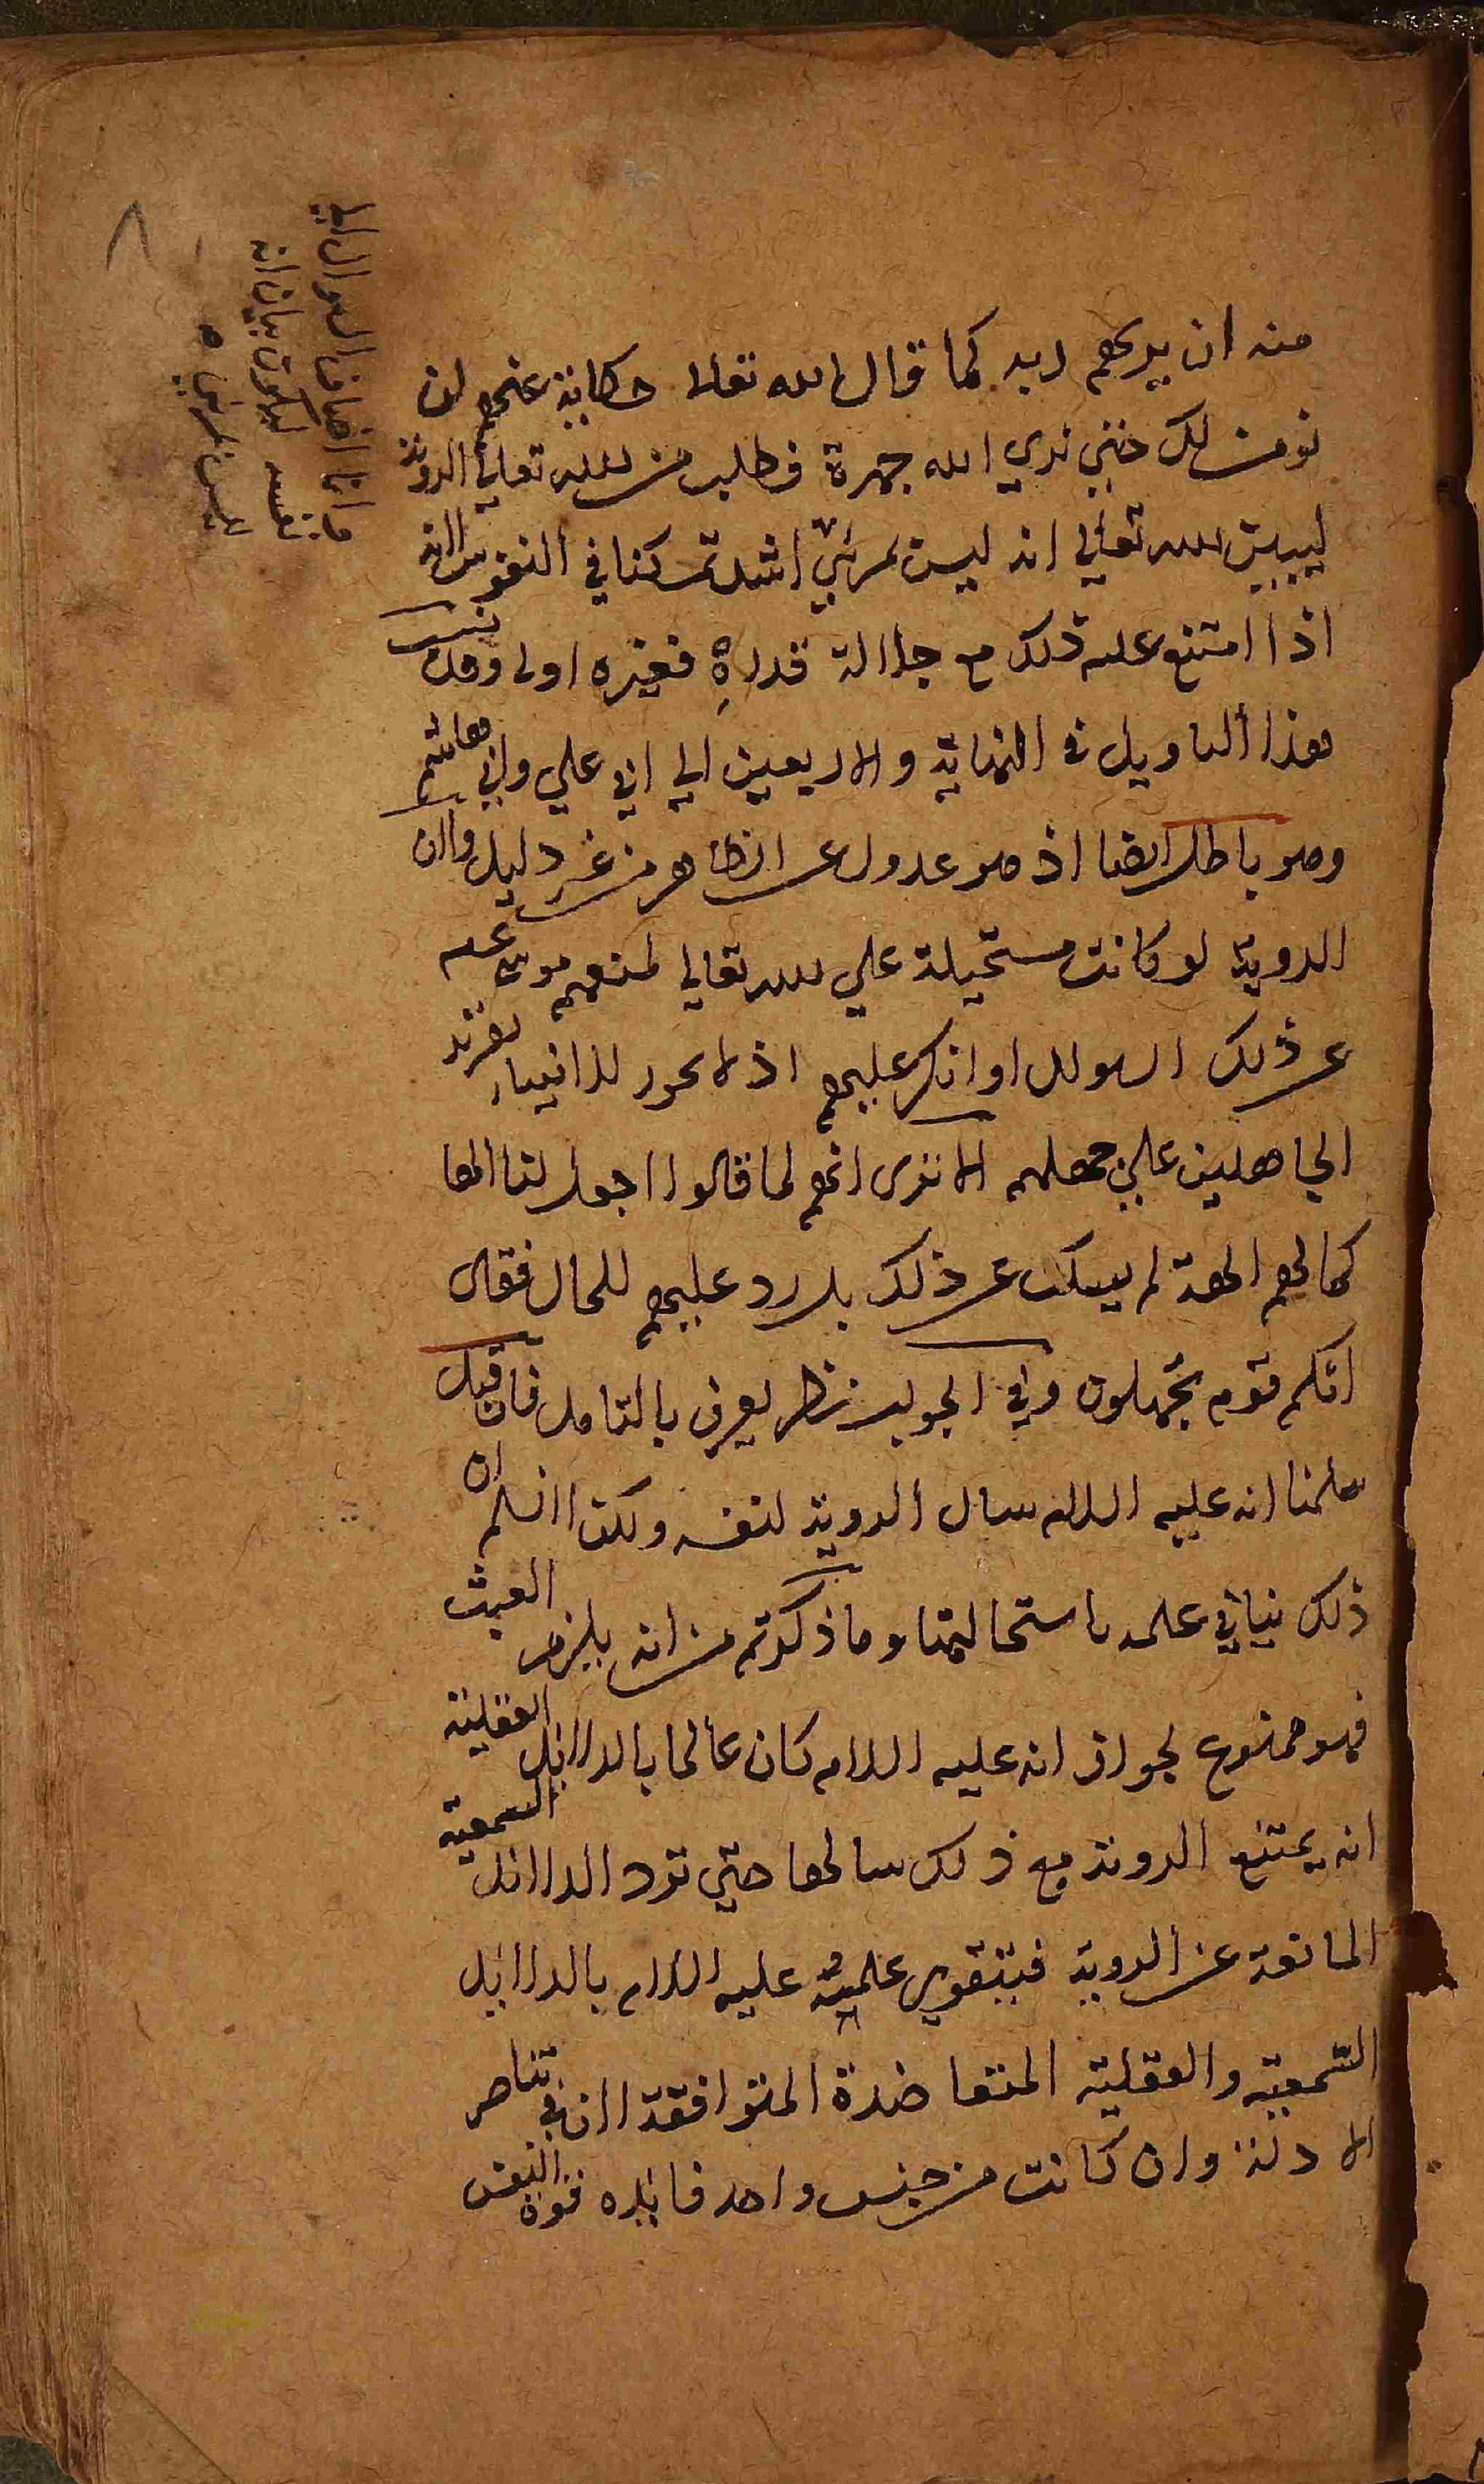 منه ان يريهم ربه كما قال الله تعالى حكاية عنهم لن
نومن لك حتى نرى الله جهرة فطلب من الله تعالى الروية
ليبين الله تعالى انه ليس بمرئي اشد تمكنا في النفوس لانه
اذا امتنع عليه ذلك مع جلالة قدره فغيره اولى وقد نسب
هذا التاويل في النهاية والاربعين الي ابي علي وابي هاشم
وهو باطل ايضا اذ هو عدول عن الظاهر من غير دليل ولان
الروية لو كانت مستحيلة علي الله تعالي لمنعهم موسى عم
عن ذلك السوال او انكر عليهم اذ لا يجوز للانبياء تقرير
الجاهلين علي جهلهم الا ترى انهم لما قالوا اجعل لنا الها
كما لهم الهة لم يسكت عن ذلك بل رد عليهم للحال فقال
انكم قوم تجهلون وفي الجواب نظر يعرف بالتامل فان قيل
سلمنا انه عليه السلام سال الروية لنفسه ولكن لا نسلم ان
ذلك ينافي علمه باستحالتها وما ذكرتم من انه يلزم العبث
فهو ممنوع لجواز انه عليه السلام كان عالما بالدلائل العقلية
انه يمتنع الروية مع ذلك سالها حتي ترد الدلائل السمعية
المانعة عن الروية فيتقوى علميته عليه السلام بالدلائل
السمعية والعقلية المتعاضدة المتوافقة لان في تناصر
الادلة وان كانت من جنس واحد فائده قوة اليقين
وانما اضاف السوال الي
نفسه ليكون بيان انه
ليس بمرئي
٨